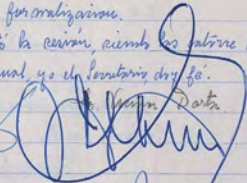 formalización.
ó la sesión, siendo las catorce
ual, yo el Secretario, doy fé.